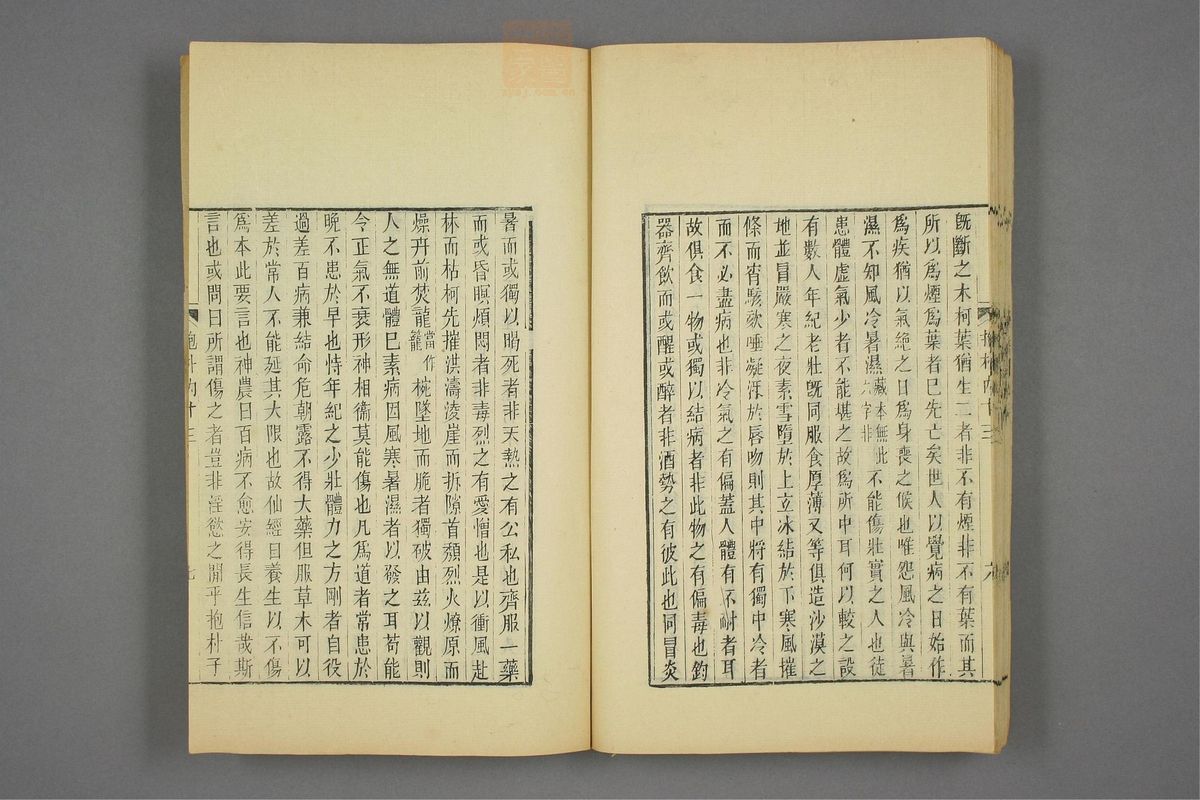 既斷之木柯葉猶生二者非不有煙非不有葉而其
所以爲煙爲葉者已先亡矣世人以覺病之日始作
爲疾猶以氣絶之日爲身喪之候也唯怨風冷與暑
濕不知風冷暑濕藏本無此六字非不能傷壯實之人也徒
患體虛氣少者不能堪之故爲所中耳何以較之設
有數人年紀老壯旣同服食厚薄又等俱造沙漠之
地並冒嚴寒之夜素雪墮於上玄冰結於下寒風摧
條而宵駭欬唾凝沍於唇吻則其中將有獨中冷者
而不必盡病也非冷氣之有偏蓋人體有不耐者耳
故俱食一物或獨以結病者非此物之有偏毒也鈞
器齊飲而或醒或醉者非酒勢之有彼此也同冒炎
暑而或獨以暍死者非天熱之有公私也齊服一藥
而或昏瞑煩悶者非毒烈之有愛憎也是以衝風赴
林而枯柯先摧洪濤淩崖而拆隙首頹烈火燎原而
燥卉前焚龍當作籠椀墜地而脆者獨破由茲以觀則
人之無道體已素病因風寒暑濕者以發之耳苟能
令正氣不衰形神相衞莫能傷也凡爲道者常患於
晚不患於早也恃年紀之少壯體力之方剛者自役
過差百病兼結命危朝露不得大藥但服草木可以
差於常人不能延其大限也故仙經曰養生以不傷
爲本此要言也神農曰百病不愈安得長生信哉斯
言也或問曰所謂傷之者豈非淫慾之閒乎抱朴子
抱朴內十三
七